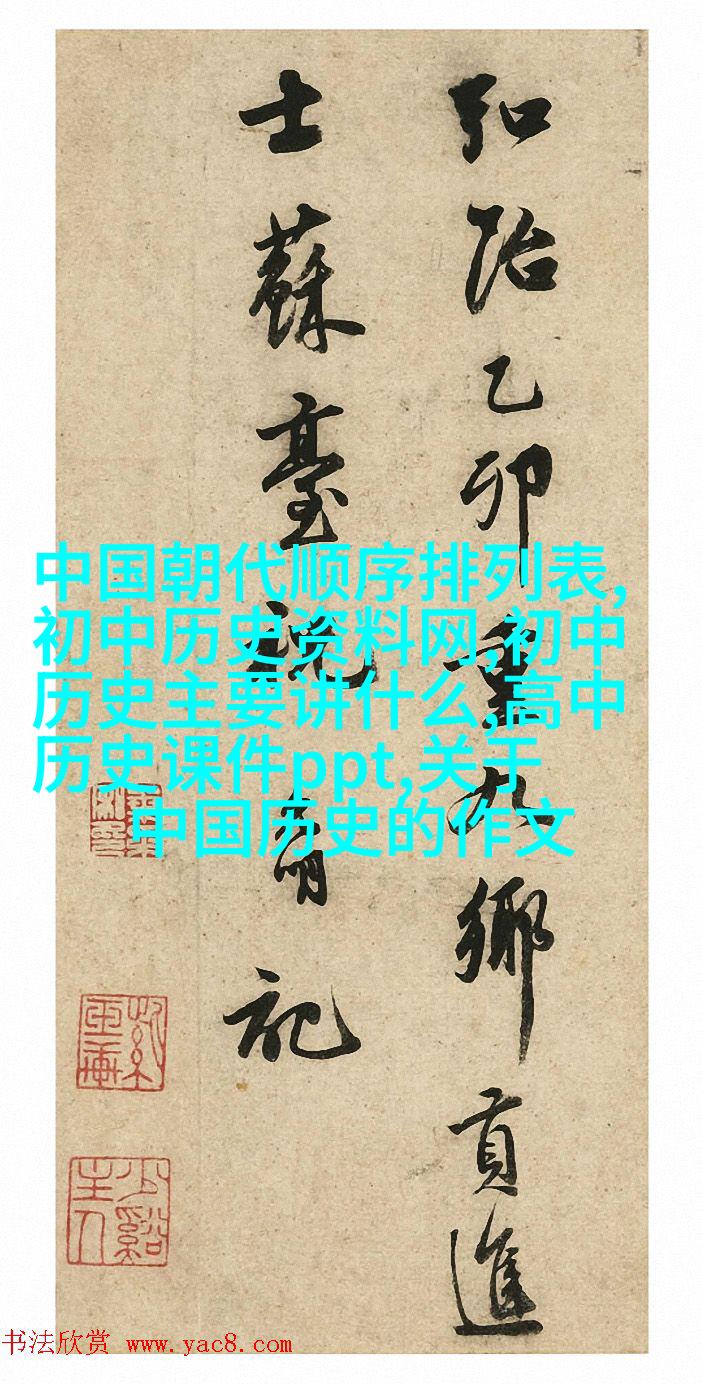 弘治乙卯重九鄉貢進
士蘇臺祝允明記
中国朝代顺序排列表,
初中历史资料网,初中
历史主要讲什么,高中
历史课件ppt,关于
中国历史的作文
少谿
主人
书法欣赏 www.yac8.com